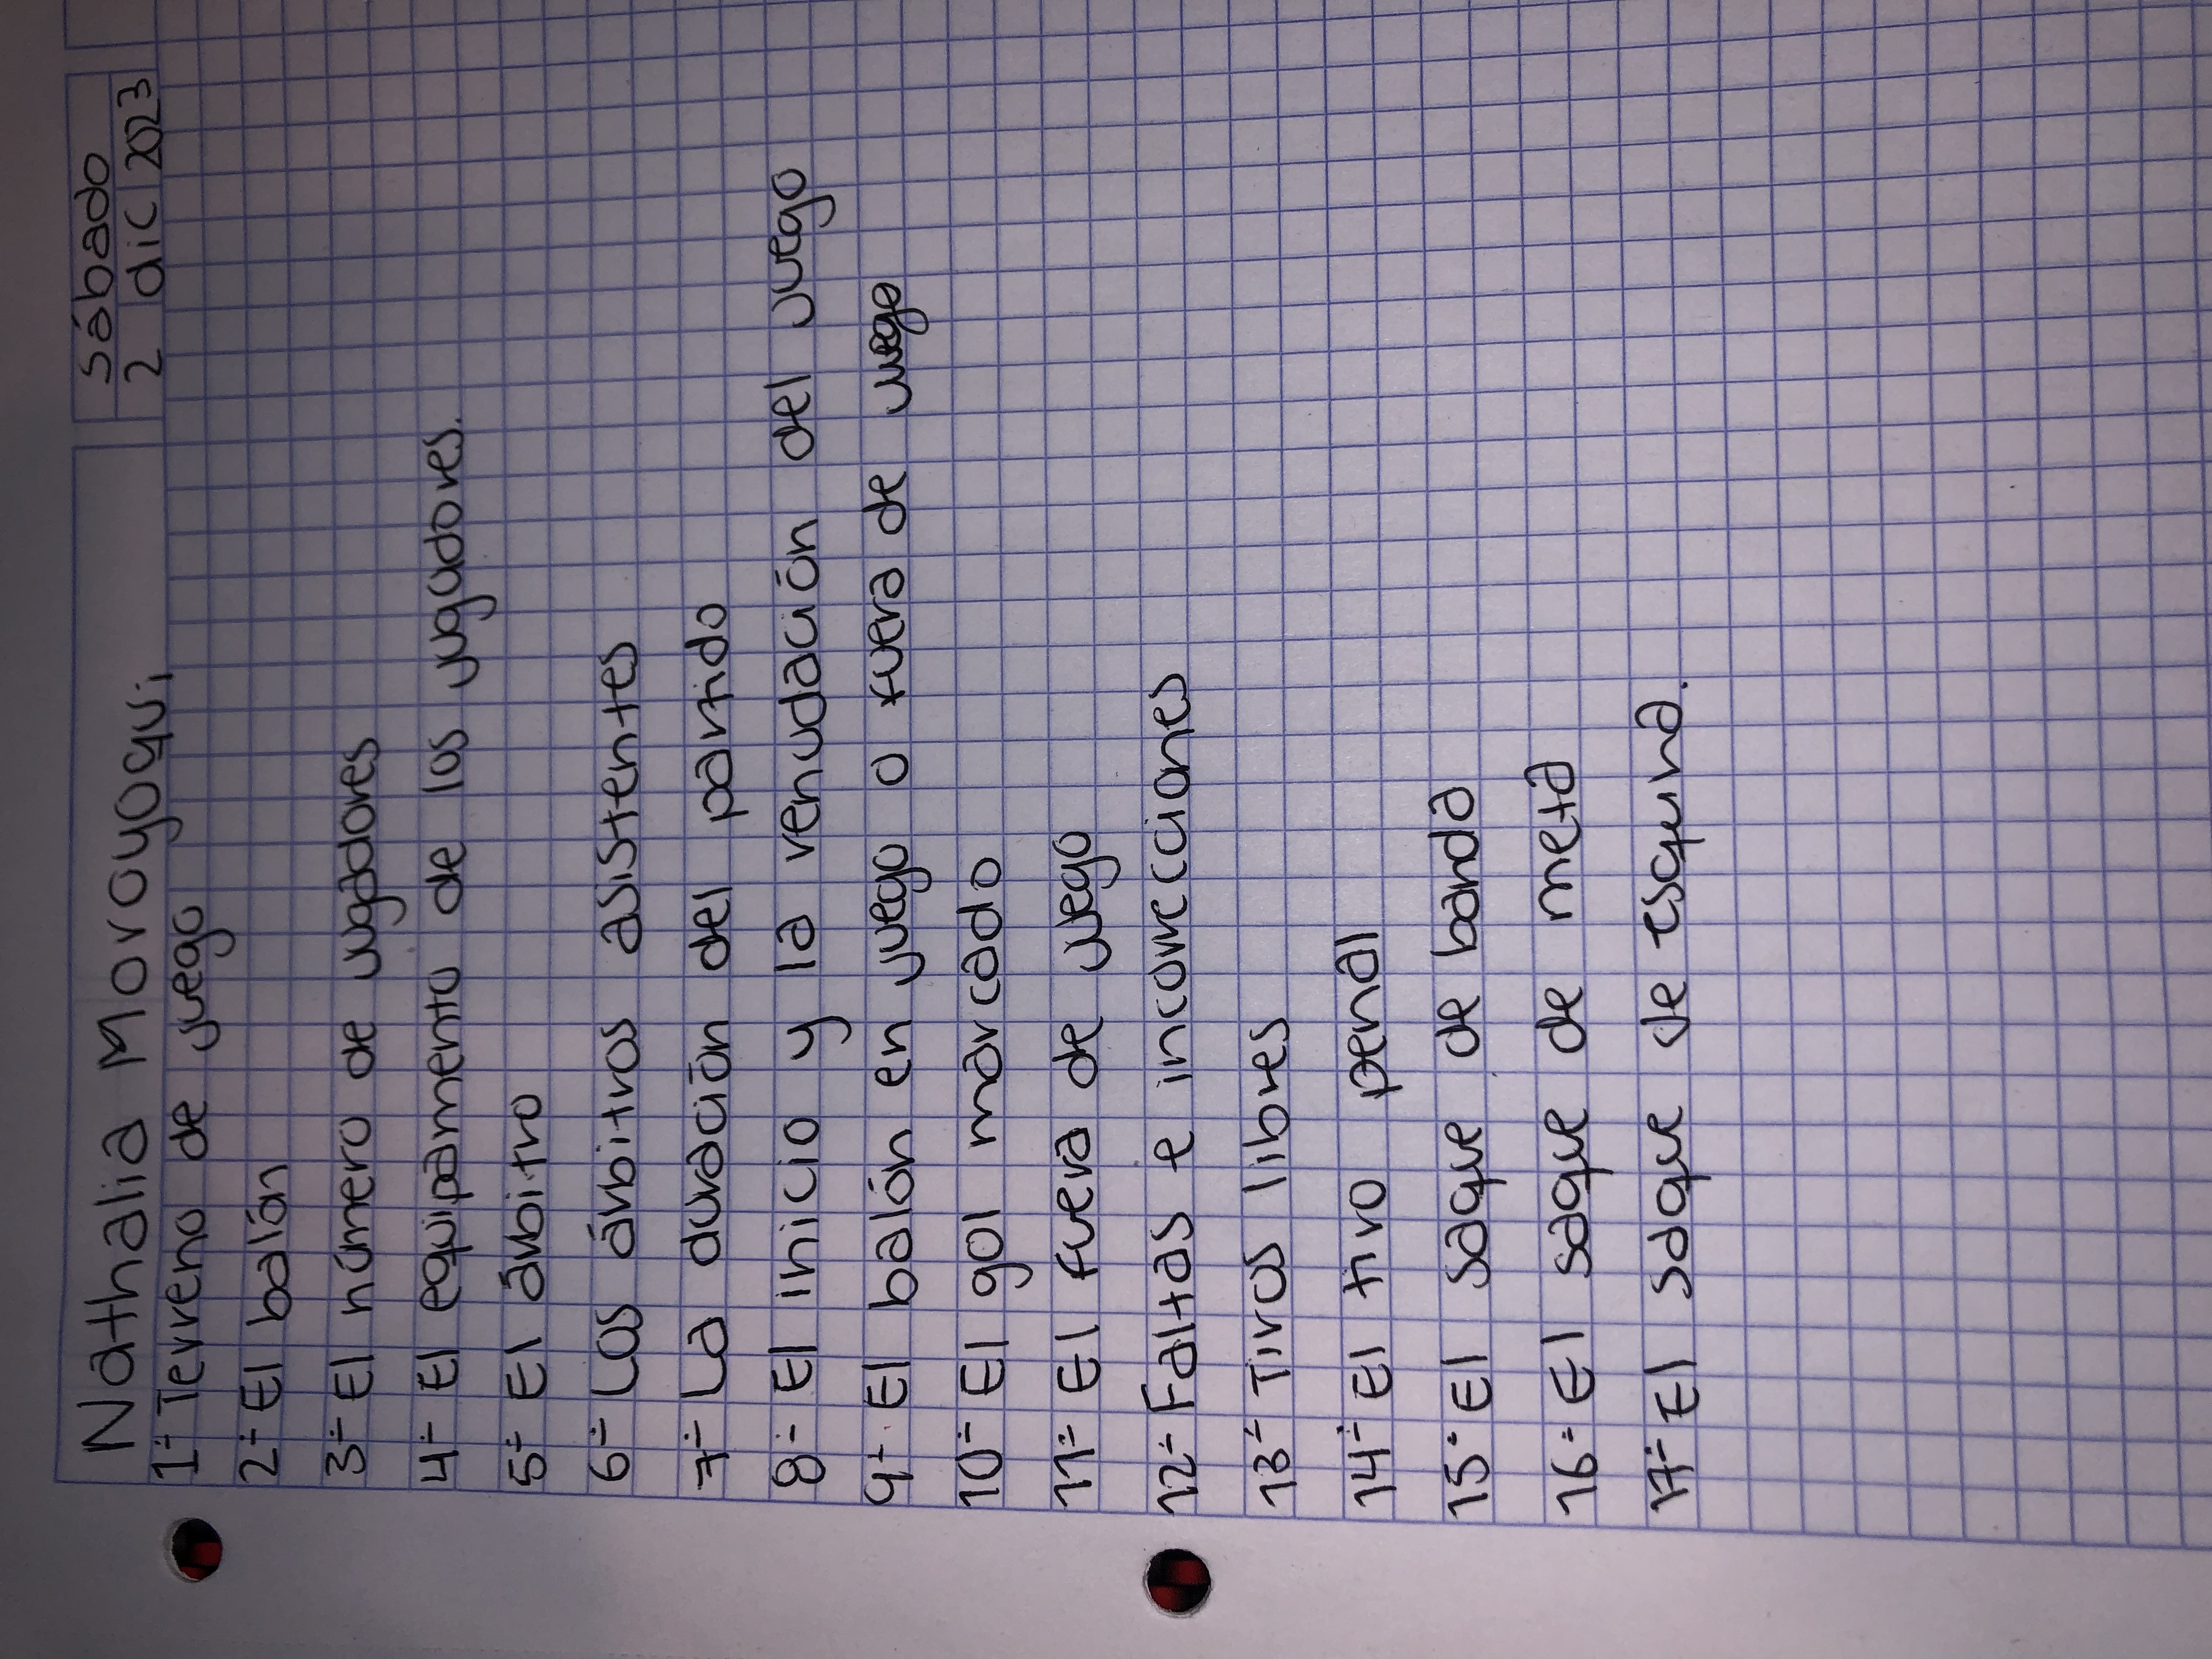 Nathalia Moroyoqui
Sábado
2 dic 2023
1- Terreno de juego
2- El balón
3- El número de jugadores
4- El equipamento de los jugadores.
5- El árbitro
6- Los árbitros asistentes
7- La duración del partido
8- El inicio y la renudación del juego
9- El balón en juego o fuera de juego
10- El gol marcado
11- El fuera de juego
12- Faltas e incorrecciones
13- Tiros libres
14- El tiro penal
15- El saque de banda
16- El saque de meta
17- El saque de esquina.